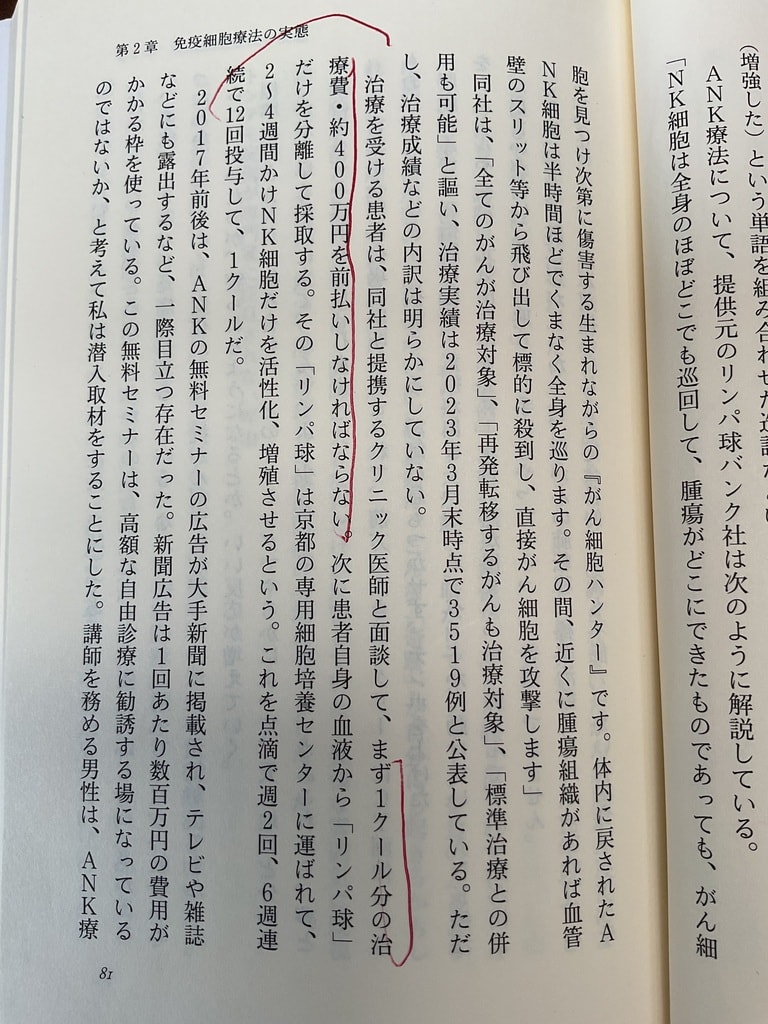 （増強した）という単語を組み合わせた造語
ANK療法について、提供元のリンパ球バンク社は次のように解説している。
「NK細胞は全身のほぼどこでも巡回して、腫瘍がどこにできたものであっても、がん細
第2章　免疫細胞療法の実態
胞を見つけ次第に傷害する生まれながらの『がん細胞ハンター』です。体内に戻されたA
NK細胞は半時間ほどでくまなく全身を巡ります。その間、近くに腫瘍組織があれば血管
壁のスリット等から飛び出して標的に殺到し、直接がん細胞を攻撃します」
同社は、「全てのがんが治療対象」、「再発転移するがんも治療対象」、「標準治療との併
用も可能」と謳い、治療実績は2023年3月末時点で3519例と公表している。ただ
し、治療成績などの内訳は明らかにしていない。
治療を受ける患者は、同社と提携するクリニック医師と面談して、まず1クール分の治
療費・約400万円を前払いしなければならない。次に患者自身の血液から「リンパ球」
だけを分離して採取する。その「リンパ球」は京都の専用細胞培養センターに運ばれて、
2〜4週間かけNK細胞だけを活性化、増殖させるという。これを点滴で週2回、6週連
続で12回投与して、1クールだ。
2017年前後は、ANKの無料セミナーの広告が大手新聞に掲載され、テレビや雑誌
などにも露出するなど、一際目立つ存在だった。新聞広告は1回あたり数百万円の費用が
かかる枠を使っている。この無料セミナーは、高額な自由診療に勧誘する場になっている
のではないか、と考えて私は潜入取材をすることにした。講師を務める男性は、ANK療
81